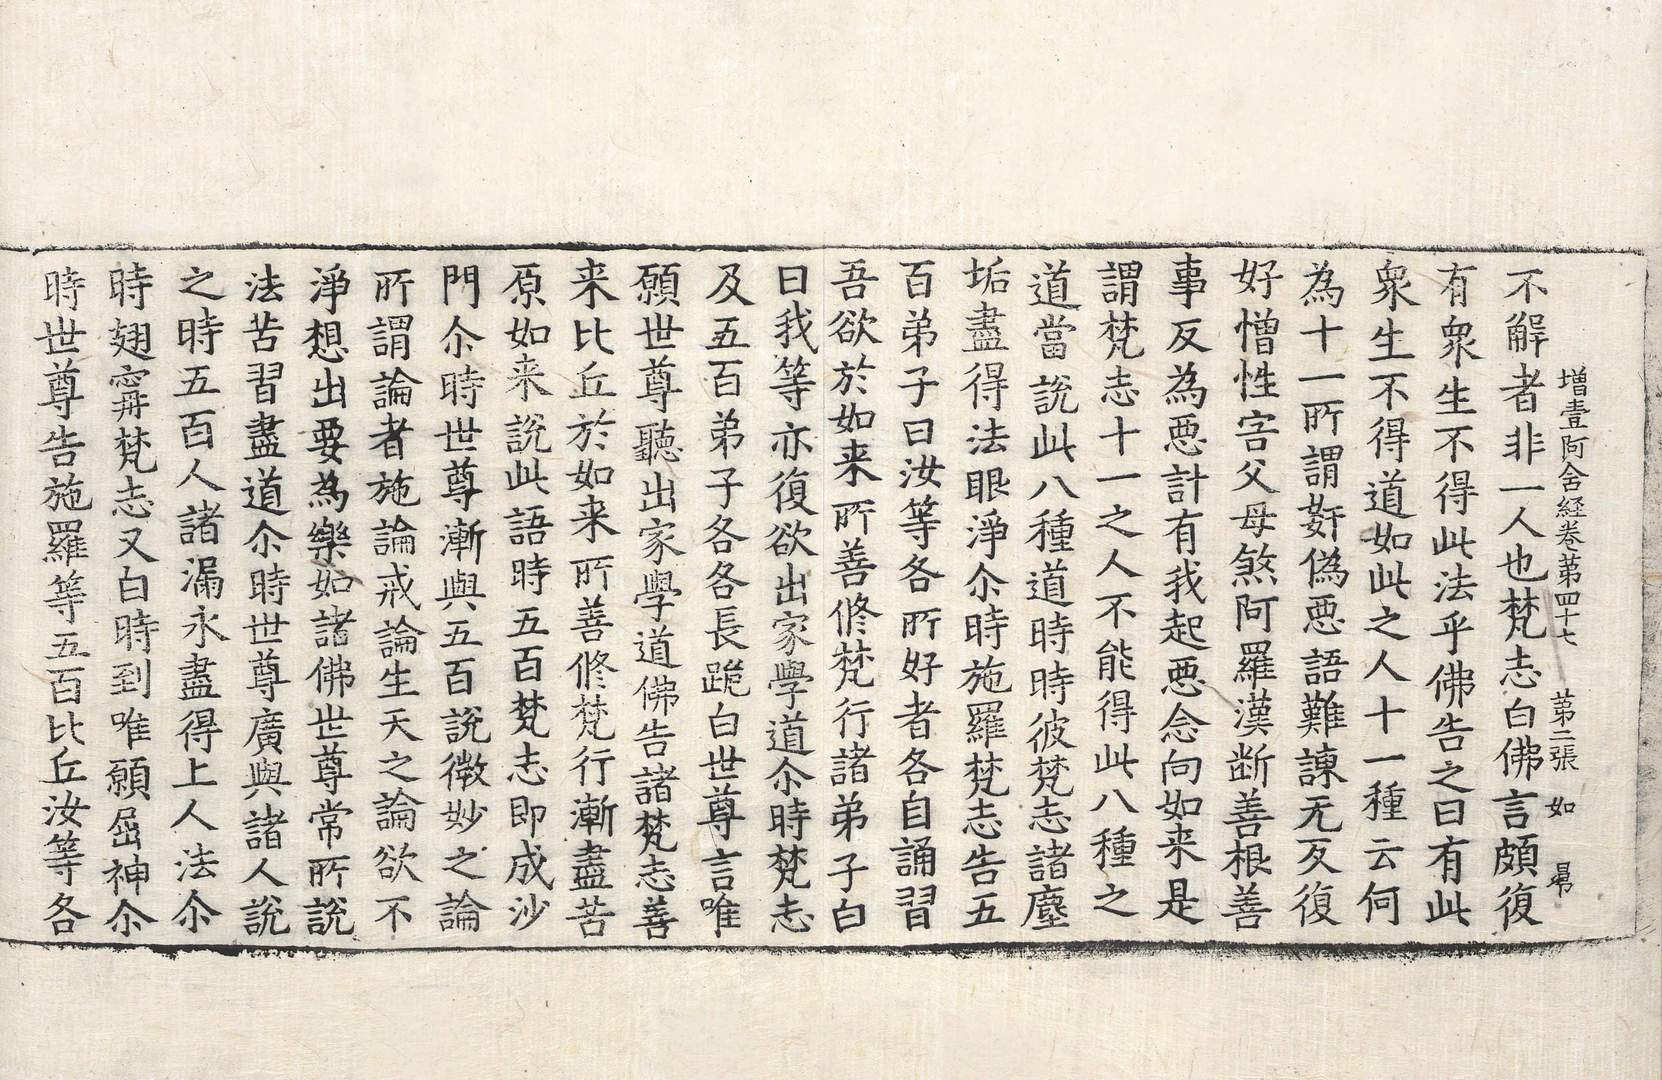 增壹阿含経卷苐四十七　苐二張　如
不解者非一人也梵志白佛言頗復
有衆生不得此法乎佛告之曰有此
衆生不得道如此之人十一種云何
為十一所謂姧偽惡語難諫无反復
好憎性害父母煞阿羅漢断善根善
事反為惡計有我起惡念向如来是
謂梵志十一之人不能得此八種之
道當說此八種道時時彼梵志諸塵
垢盡得法眼淨尒時施羅梵志告五
百弟子曰汝等各所好者各自誦習
吾欲於如来所善修梵行諸弟子白
曰我等亦復欲出家學道尒時梵志
及五百弟子各各長跪白世尊言唯
願世尊聽出家學道佛告諸梵志善
来比丘於如来所善修梵行漸盡苦
原如来說此語時五百梵志即成沙
門尒時世尊漸與五百說微妙之論
所謂論者施論戒論生天之論欲不
淨想出要為樂如諸佛世尊常所說
法苦習盡道尒時世尊廣與諸人說
之時五百人諸漏永盡得上人法尒
時翅甯梵志又白時到唯願屈神尒
時世尊告施羅等五百比丘汝等各